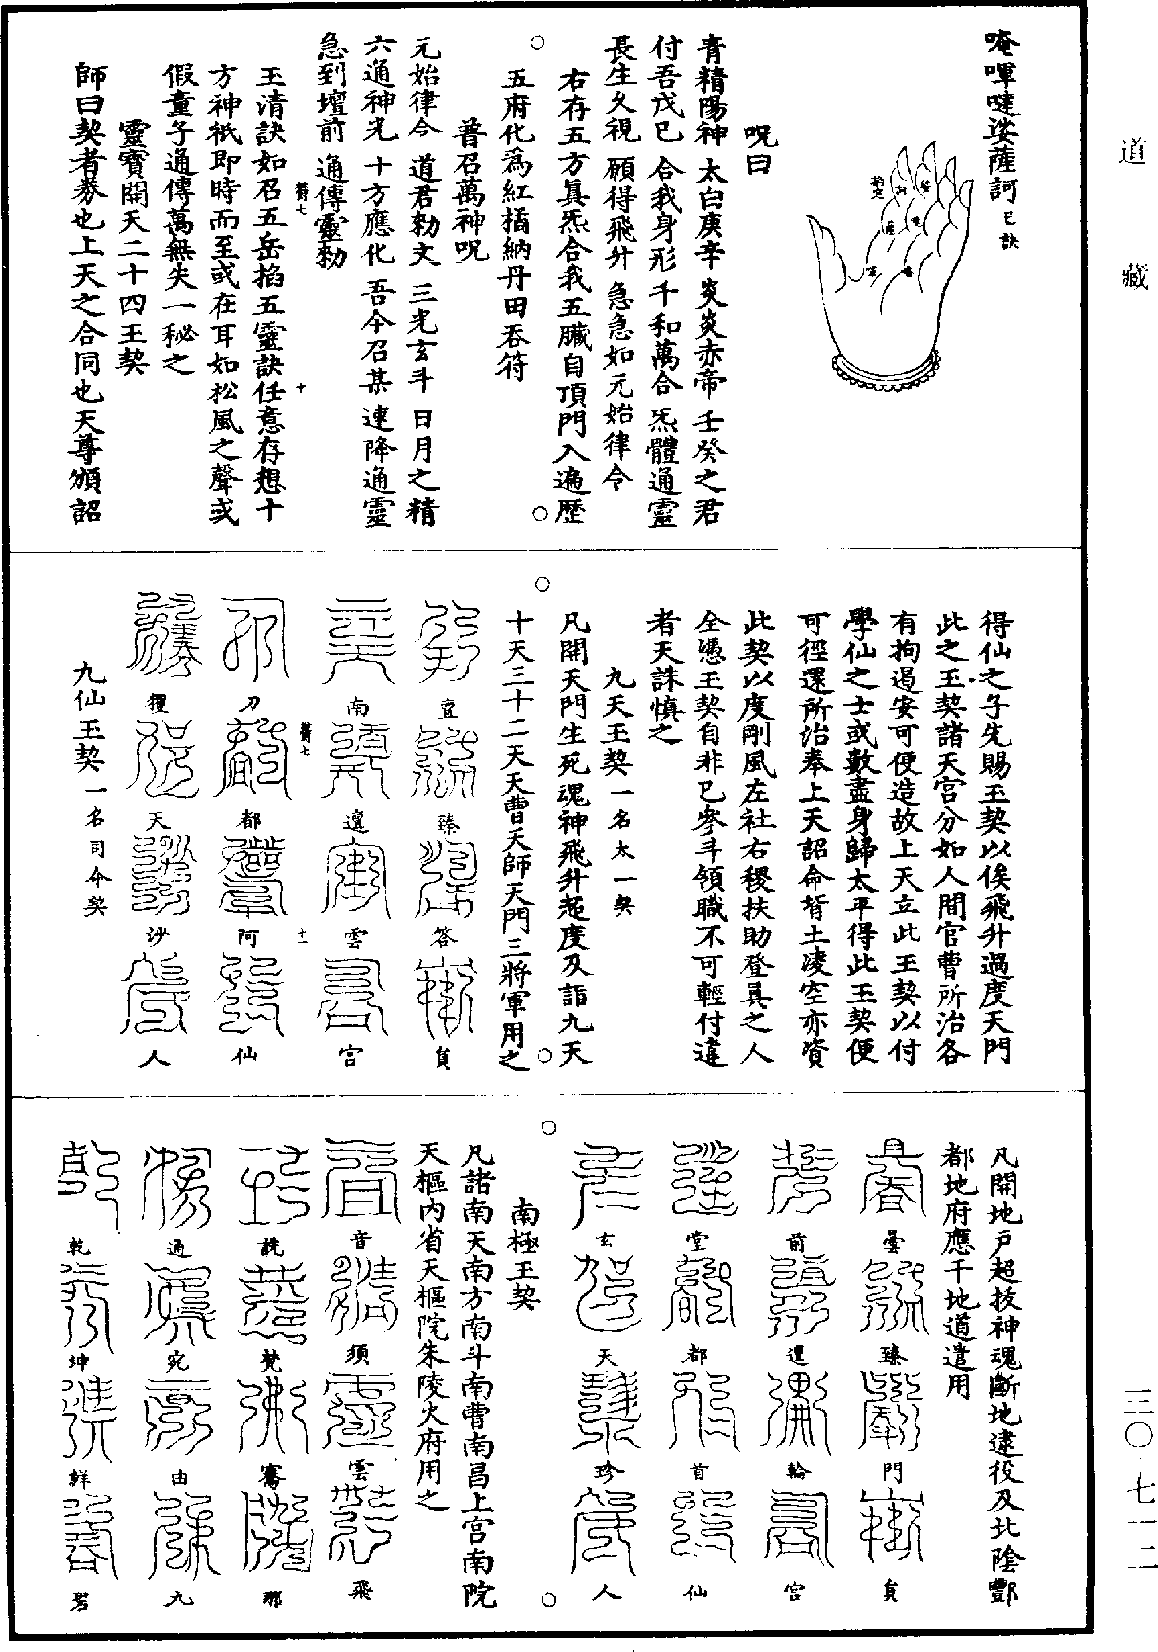 道藏
三〇·七一二
唵㖶噠娑薩訶己訣
呪曰
青精陽神 太白庚辛 炎炎赤帝 壬癸之君
付吾戊己 合我身形 千和萬合 炁體通靈
長生久視 願得飛升 急急如元始律令
右存五方真炁合我五臟自頂門入遍歷
五府化為紅橘納丹田吞符
普召萬神呪
元始律令 道君勑文 三光玄斗 日月之精
六通神光 十方應化 吾今召某 速降通靈
急到壇前 通傳靈勑
玉清訣如召五岳掐五靈訣任意存想十
方神祇即時而至或在耳如松風之聲或
假童子通傳萬無失一秘之
靈寶開天二十四玉契
師曰契者券也上天之合同也天尊頒詔
得仙之子先賜玉契以俟飛升過度天門
此之玉契諸天宮分如人間官曹所治各
有拘遏安可便造故上天立此玉契以付
學仙之士或數盡身歸太平得此玉契便
可徑還所治奉上天詔命背土凌空亦資
此契以度剛風左社右稷扶助登真之人
全憑玉契自非已參斗領職不可輕付違
者天誅慎之
九天玉契一名太一契
凡開天門生死魂神飛升超度及詣九天
十天三十二天天曹天師天門三將軍用之
宣 臻 答 負
南 還 雲 宮
刀 都 阿 仙
獲 天 沙 人
九仙玉契一名司命契
凡開地戶超拔神魂斷地逮役及北陰酆
都地府應干地道遣用
曇 臻 門 負
前 還 輪 宮
堂 都 首 仙
玄 天 珍 人
南極玉契
凡諸南天南方南斗南曹南昌上宮南院
天樞內省天樞院朱陵火府用之
音 須 雲 飛
說 梵 騫 那
通 宛 由 九
乾 坤 鮮